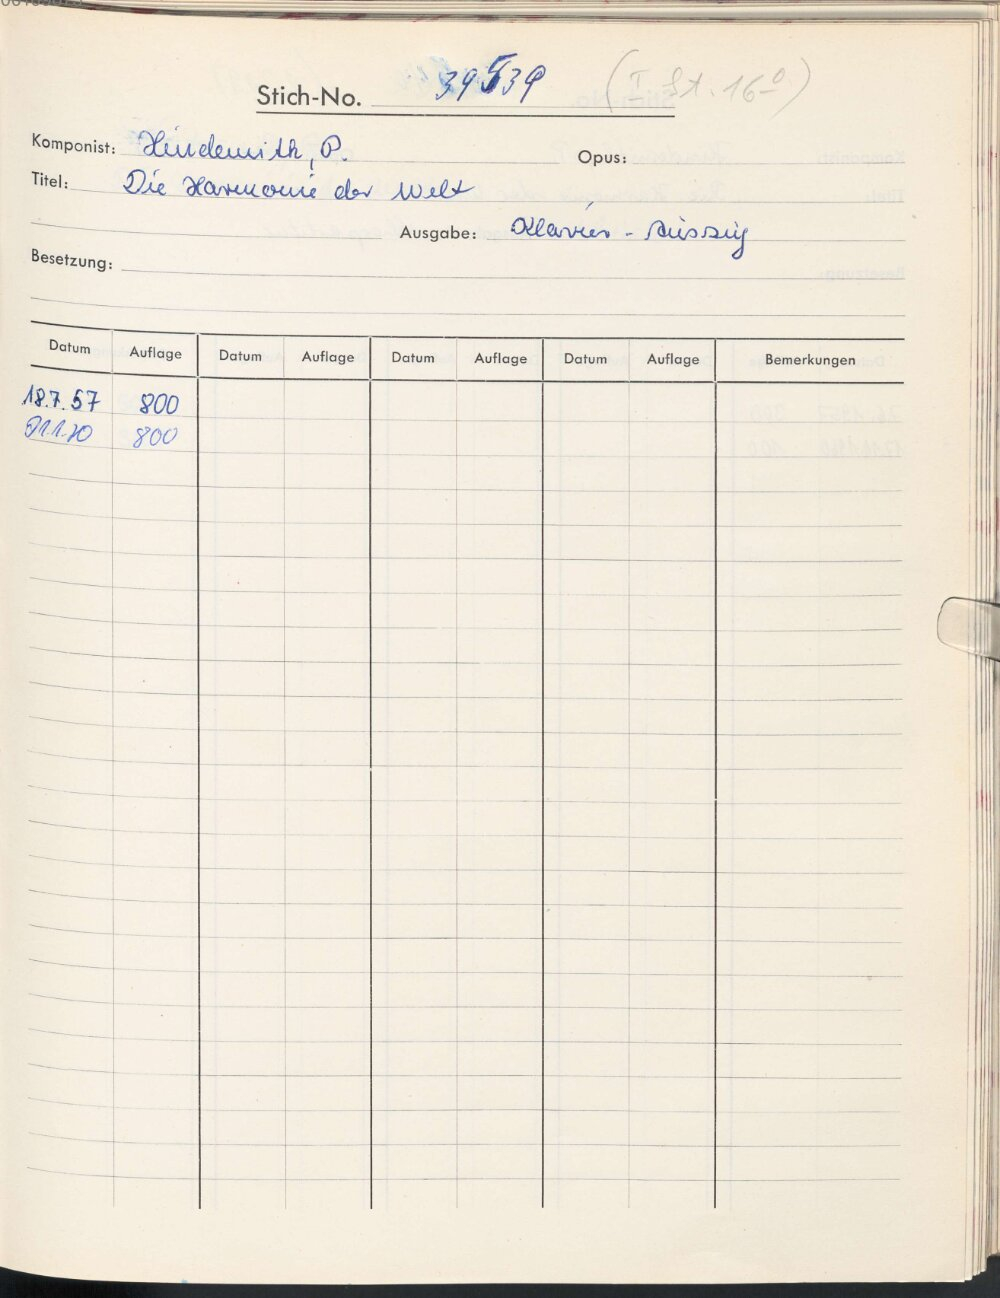 Stich-No. 39539 (I St. 16º)
Komponist: Hindemith, P. Opus:
Titel: Die Harmonie der Welt
Ausgabe: Klavier-Auszug
Besetzung:
Datum Auflage Datum Auflage Datum Auflage Datum Auflage Bemerkungen
18.7.57 800
800